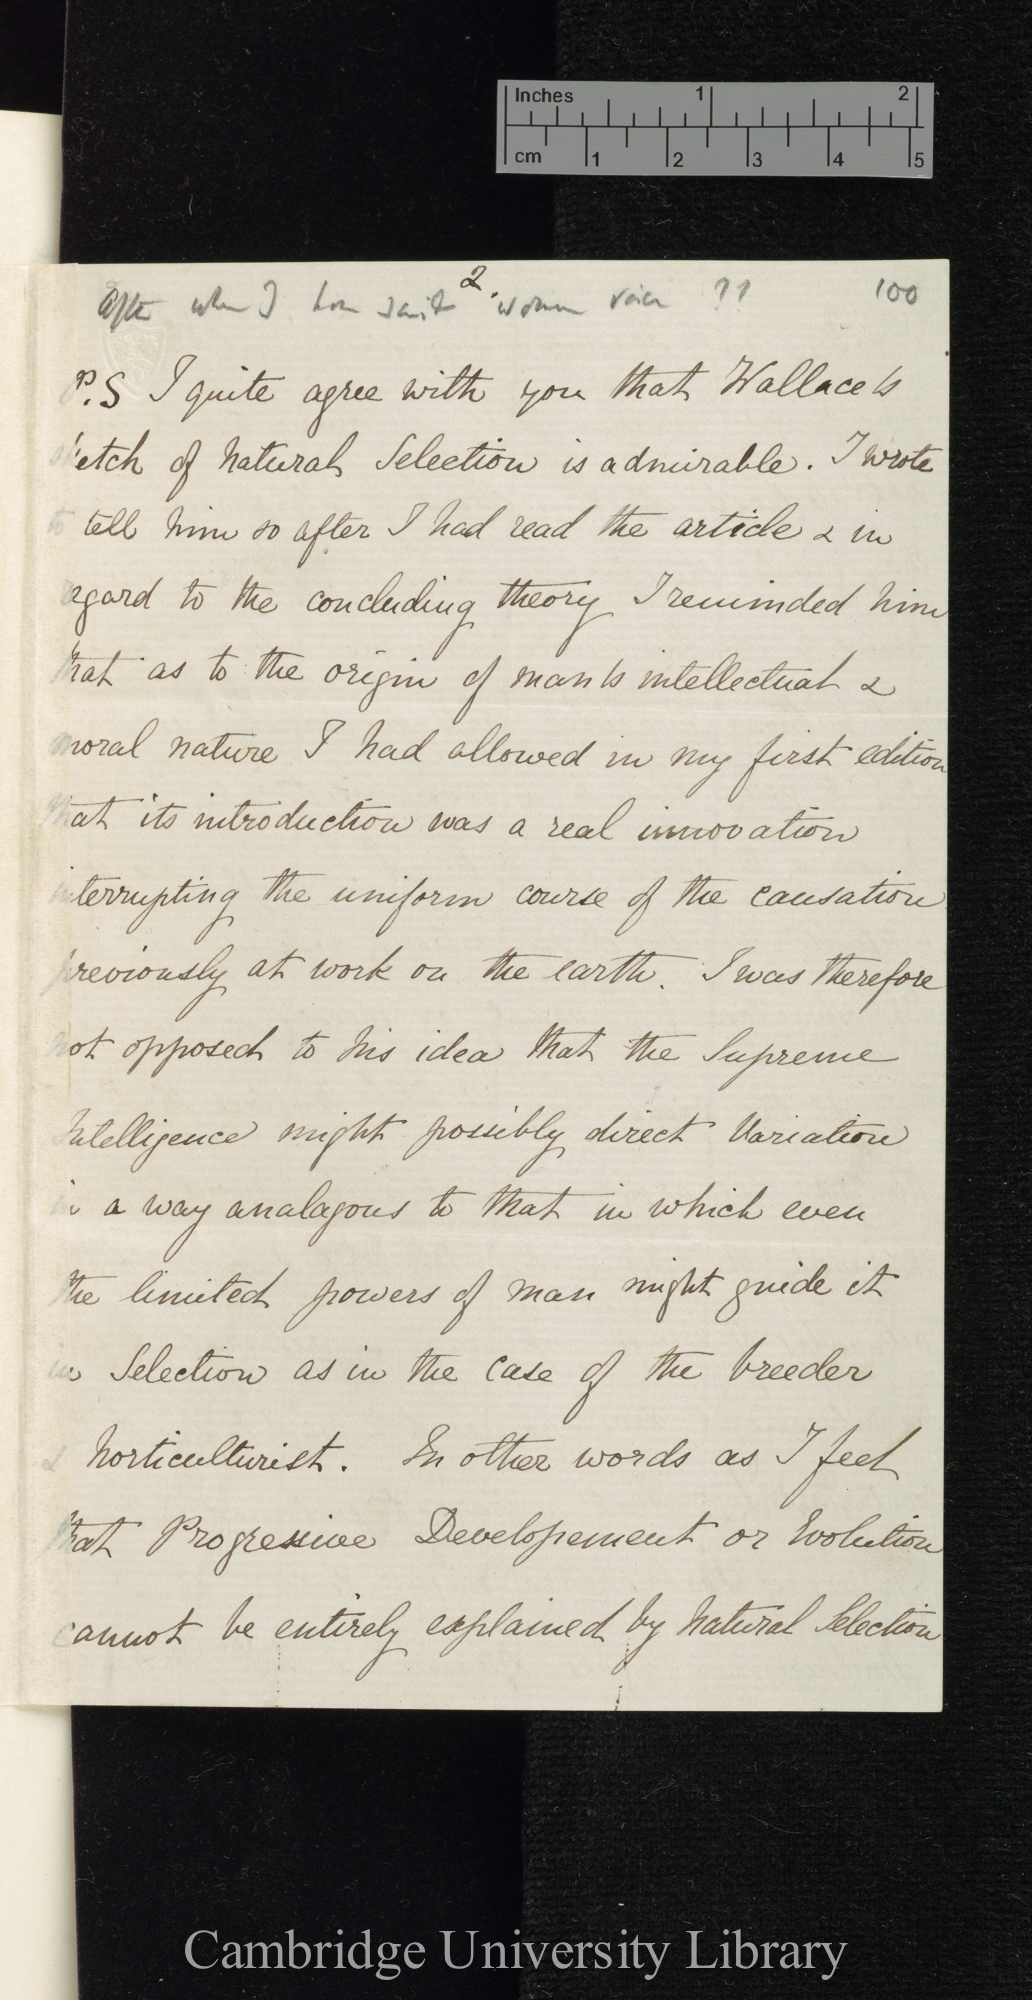 Inches 1 2
cm 1 2 3 4 5
2.
when I have 100
P.S I quite agree with you that Wallace's
sketch of Natural Selection is admirable. I wrote
to tell him so after I had read the article & in
regard to the concluding theory I reminded him
that as to the origin of man's intellectual &
moral nature I had allowed in my first edition
that its introduction was a real innovation
interrupting the uniform course of the causation
previously at work on the earth. I was therefore
not opposed to his idea that the Supreme
Intelligence might possibly direct Variation
in a way analagous to that in which even
the limited powers of man might guide it
in Selection as in the case of the breeder
& horticulturist. In other words as I feel
that Progressive Developement or Evolution
cannot be entirely explained by Natural Selection
Cambridge University Library